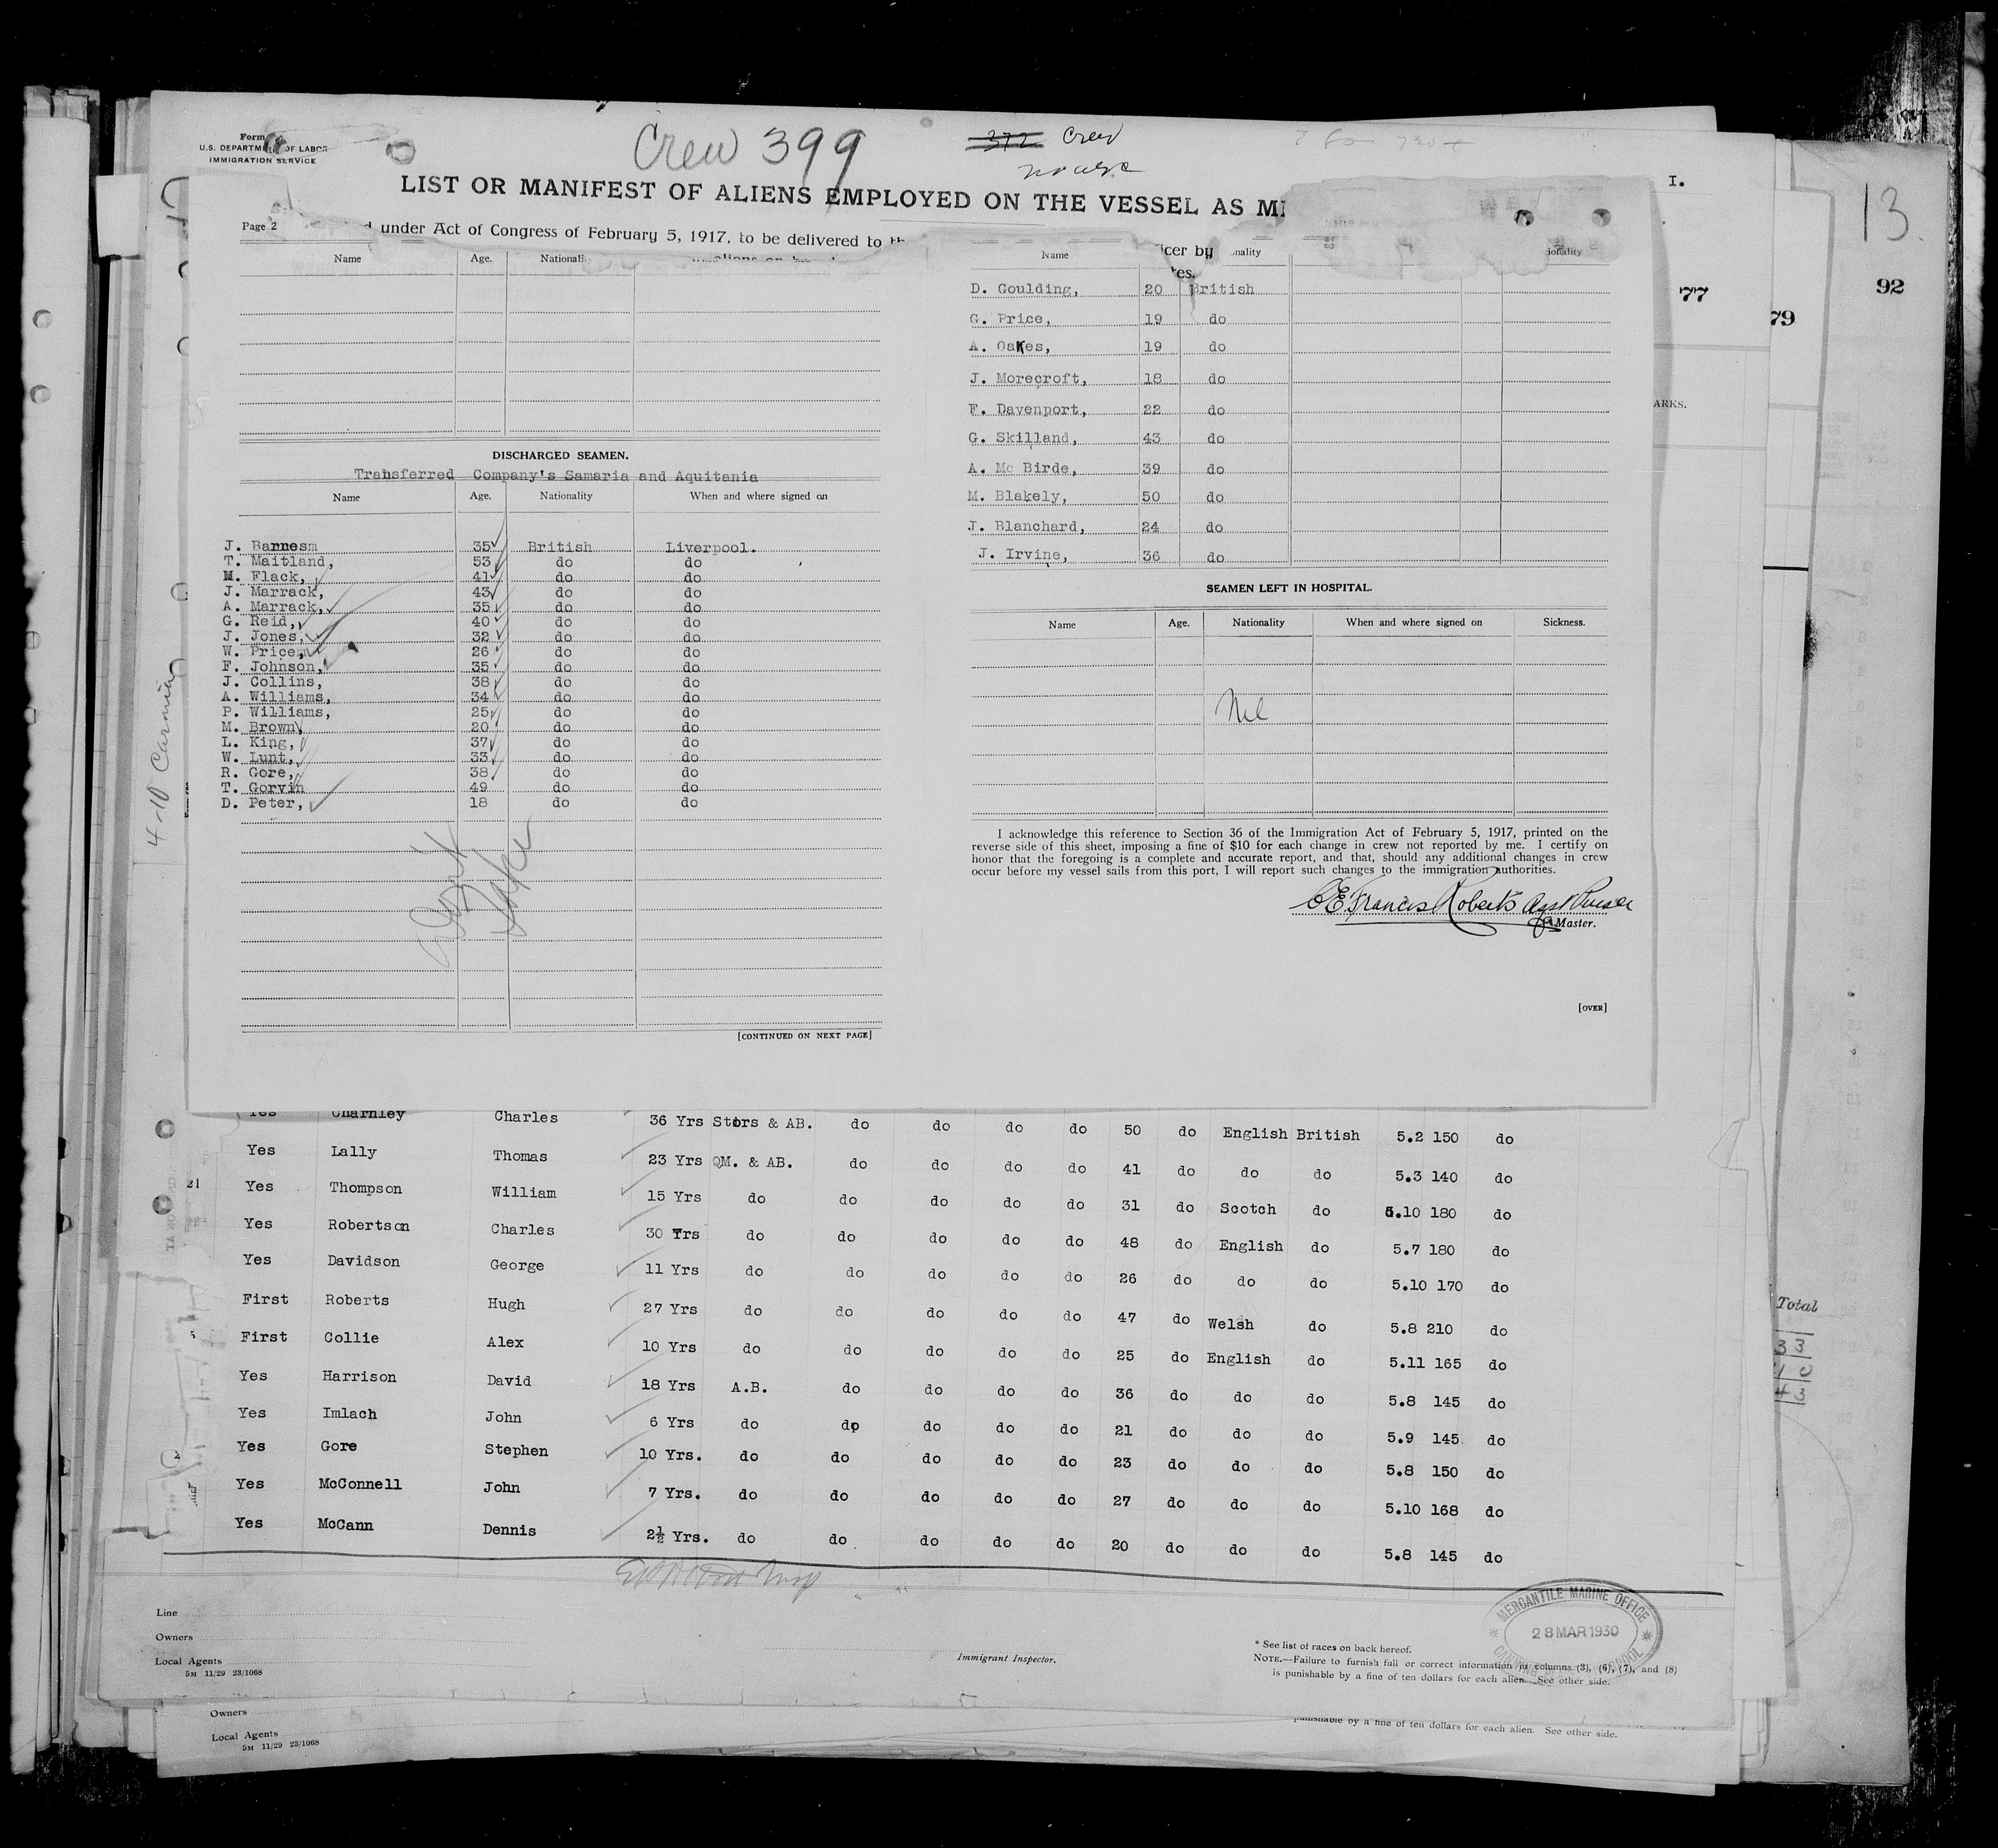 Form
U.S. DEPARTMENT OF LABOR
IMMIGRATION SERVICE
Crew 399
372 Crew
I.
LIST OR MANIFEST OF ALIENS EMPLOYED ON THE VESSEL AS
13.
Page 2
under Act of Congress of February 5, 1917, to be delivered to
Name Age. Name
icer by
tes.
92
77
79
D. Goulding, 20 British
G. Price, 19 do
A. Oakes, 19 do
J. Morecroft, 18 do
F. Davenport, 22 do
G. Skilland, 43 do
A. Mc Birde, 39 do
M. Blakely, 50 do
J. Blanchard, 24 do
J. Irvine, 36 do
ARKS.
DISCHARGED SEAMEN.
Trahsferred Company's Samaria and Aquitania
Name Age. Nationality When and where signed on
J. Barnesm 35 British Liverpool.
T. Maitland, 53 do do
M. Flack, 41 do do
J. Marrack, 43 do do
A. Marrack, 35 do do
G. Reid, 40 do do
J. Jones, 32 do do
W. Price, 26 do do
F. Johnson, 35 do do
J. Collins, 38 do do
A. Williams, 34 do do
P. Williams, 25 do do
M. Brown 20 do do
L. King, 37 do do
W. Lunt, 33 do do
R. Gore, 38 do do
T. Gorvin 49 do do
D. Peter, 18 do do
[CONTINUED ON NEXT PAGE]
SEAMEN LEFT IN HOSPITAL.
Name Age. Nationality When and where signed on Sickness.
Nil
I acknowledge this reference to Section 36 of the Immigration Act of February 5, 1917, printed on the
reverse side of this sheet, imposing a fine of $10 for each change in crew not reported by me. I certify on
honor that the foregoing is a complete and accurate report, and that, should any additional changes in crew
occur before my vessel sails from this port, I will report such changes to the immigration authorities.
C E Francis Roberts Asst Purser
Master.
[OVER]
Yes Charnley Charles 36 Yrs Stors & AB. do do do do 50 do English British 5.2 150 do
Yes Lally Thomas 23 Yrs QM. & AB. do do do do 41 do do do 5.3 140 do
21 Yes Thompson William 15 Yrs do do do do do 31 do Scotch do 5.10 180 do
Yes Robertson Charles 30 Yrs do do do do do 48 do English do 5.7 180 do
Yes Davidson George 11 Yrs do do do do do 26 do do do 5.10 170 do
First Roberts Hugh 27 Yrs do do do do do 47 do Welsh do 5.8 210 do
First Collie Alex 10 Yrs do do do do do 25 do English do 5.11 165 do
Yes Harrison David 18 Yrs A.B. do do do do 36 do do do 5.8 145 do
Yes Imlach John 6 Yrs do do do do do 21 do do do 5.9 145 do
Yes Gore Stephen 10 Yrs. do do do do do 23 do do do 5.8 150 do
Yes McConnell John 7 Yrs. do do do do do 27 do do do 5.10 168 do
Yes McCann Dennis 2½ Yrs. do do do do do 20 do do do 5.8 145 do
Total
33
40
43
Line
Owners
Local Agents
5M 11/29 23/1068
Immigrant Inspector.
MERCANTILE MARINE OFFICE
28 MAR 1930
* See list of races on back hereof.
NOTE.—Failure to furnish full or correct information in columns (3), (6), (7), and (8)
is punishable by a fine of ten dollars for each alien. See other side.
Owners
Local Agents
5M 11/29 23/1068
punishable by a fine of ten dollars for each alien. See other side.